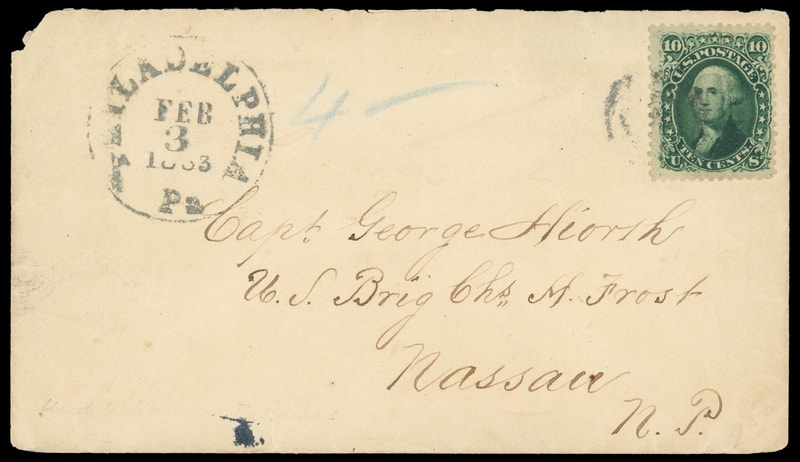 PHILADELPHIA
FEB
3
1863
Pa
4
10 10
U.S. POSTAGE
TEN CENTS
U S
Capt. George Hiorth
U. S. Brig Chs. M. Frost
Nassau
N. P.